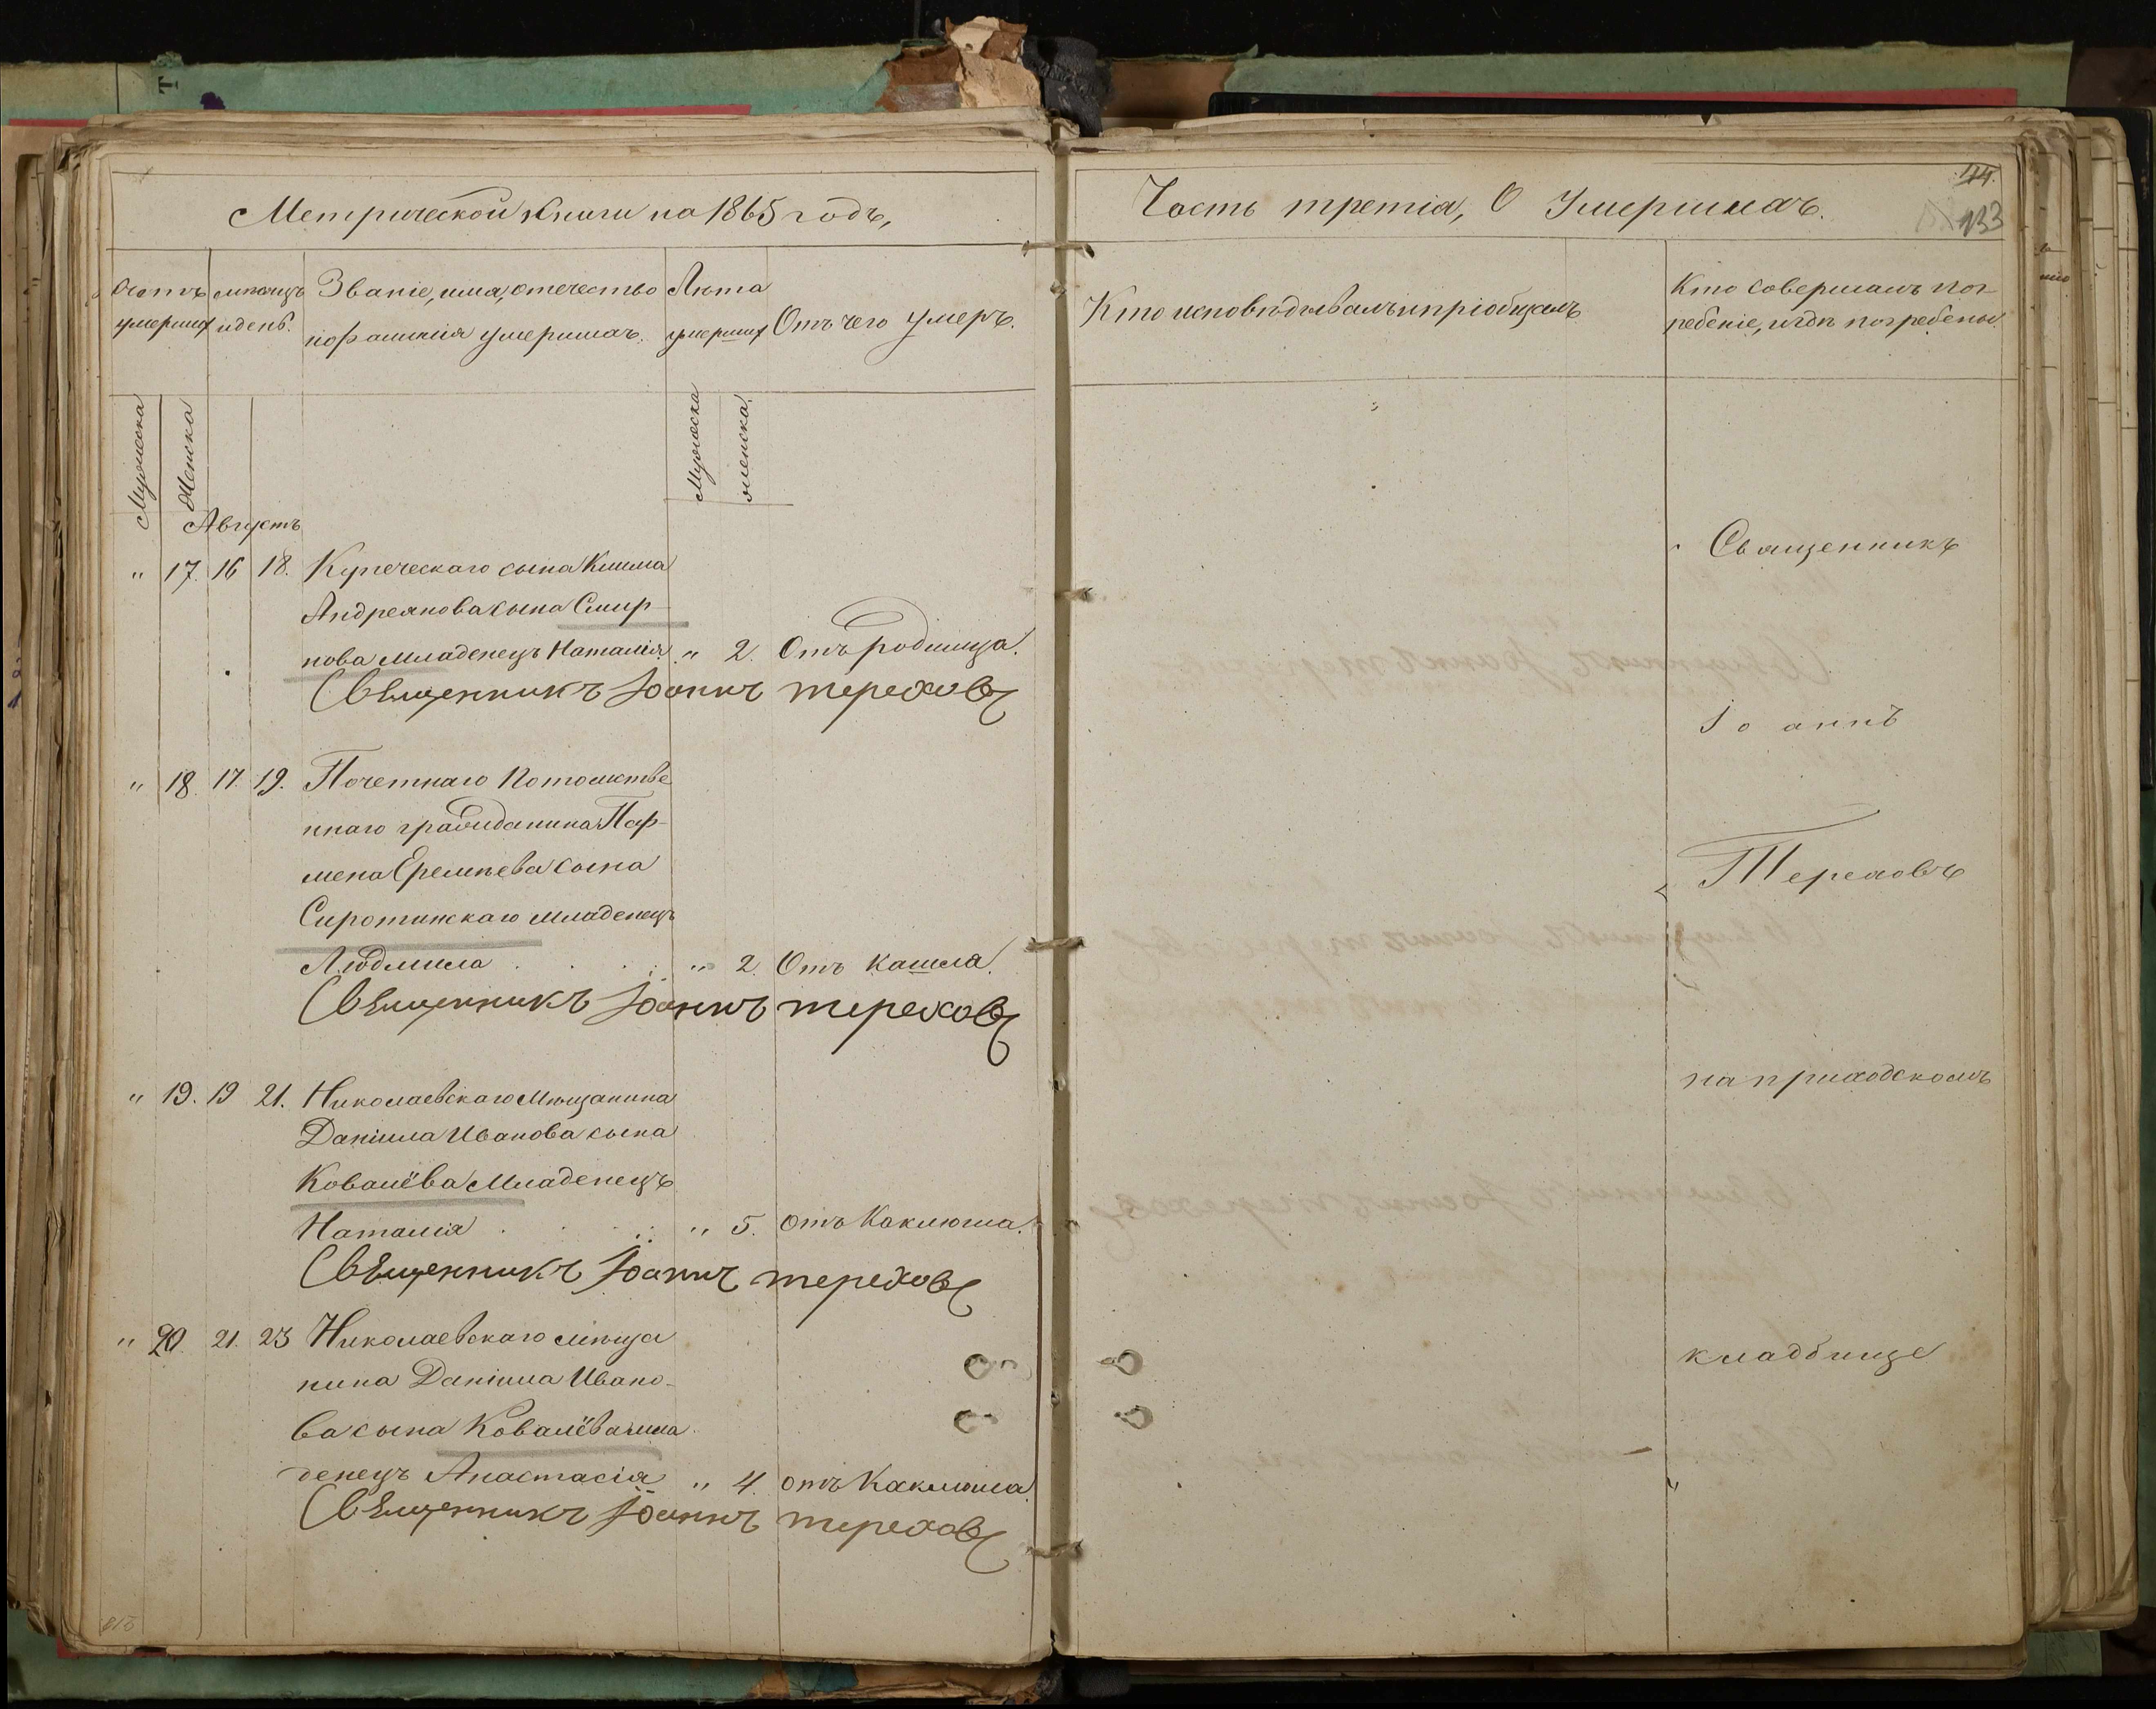 Метрической Книги на 1865 годъ,
Счетъ умерших
мѣсяцъ и день.
Званіе, имя, отечество
и фамилія умершихъ.
Лѣта умерших
Отъ чего умеръ.
Мужеска
Женска
Мужеска
женска.
Августъ
" 17. 16 18. Купеческаго сына Клима
Андреянова сына Смир-
нова младенецъ Наталія " 2. Отъ родимца.
Священникъ Іоаннъ Тереховъ
" 18. 17. 19. Почетнаго Потомстве
ннаго гражданина Пар-
мена Еремѣева сына
Сиротинскаго младенецъ
Людмила " 2. Отъ кашля.
Священникъ Іоаннъ Тереховъ
" 19. 19 21. Николаевскаго Мѣщанина
Даніила Иванова сына
Ковалёва Младенецъ
Наталія " 5. отъ Каклюша.
Священникъ Іоаннъ Тереховъ
" 20. 21. 23 Николаевскаго мѣща
нина Даніила Ивано-
ва сына Ковалёва мла
денецъ Анастасія " 4. отъ Каклюша.
Священникъ Іоаннъ Тереховъ
Часть третія, О Умершихъ.
144.
133
Кто исповѣдывалъ и пріобщалъ
Кто совершалъ пог
ребеніе, и гдѣ погребены
Священникъ
Іоаннъ
Тереховъ
на приходскомъ
кладбище